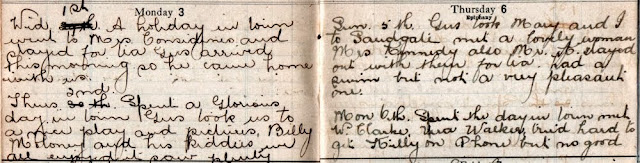 1st
Monday 3
Wed, A holiday in town
went to Mrs Considines and
stayed for tea Gus arrived
this morning so he came home
with us.
2nd
Thurs, Spent a Glorious
day in town Gus took us to
a nice play and pictures, Billy
Moloney and his kiddies in
all enjoyed it saw plenty
Thursday 6
Epiphany
Sun. 5th. Gus took Mary and I
to Sandgate met a lovely woman
Mrs Kennedy also Mr. K. stayed
out with them for tea. had a
swim but not a very pleasant
one.
Mon 6th. Spent the day in town met
W. Clarke, Una Walker, tried hard to
get Killy on Phone but no good